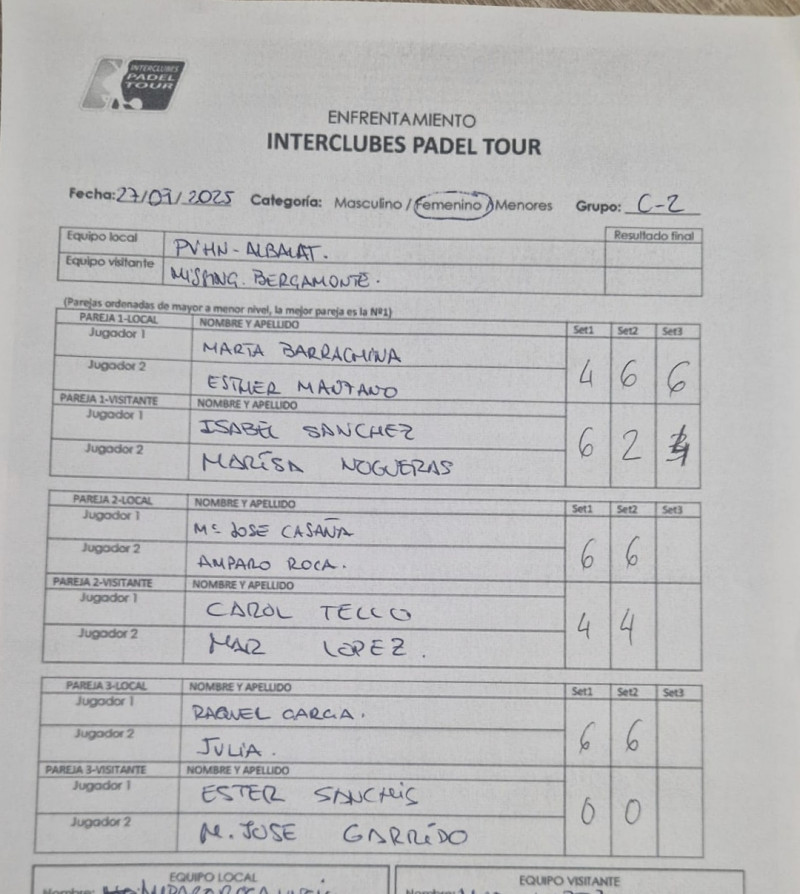 INTERCLUBES
PADEL
TOUR
ENFRENTAMIENTO
INTERCLUBES PADEL TOUR
Fecha: 27/09/2025 Categoría: Masculino / Femenino / Menores Grupo: C-2
Equipo local PVHN-ALBALAT. Resultado final
Equipo visitante MISSPING. BERGAMONTE.
(Parejas ordenadas de mayor a menor nivel, la mejor pareja es la Nº1)
PAREJA 1-LOCAL NOMBRE Y APELLIDO Set1 Set2 Set3
Jugador 1 MARTA BARRACHINA
Jugador 2 ESTHER MANZANO 4 6 6
PAREJA 1-VISITANTE NOMBRE Y APELLIDO
Jugador 1 ISABEL SANCHEZ
Jugador 2 MARISA NOGUERAS 6 2
PAREJA 2-LOCAL NOMBRE Y APELLIDO Set1 Set2 Set3
Jugador 1 Mª JOSE CASAÑA
Jugador 2 AMPARO ROCA. 6 6
PAREJA 2-VISITANTE NOMBRE Y APELLIDO
Jugador 1 CAROL TELLO
Jugador 2 MAR LOPEZ. 4 4
PAREJA 3-LOCAL NOMBRE Y APELLIDO Set1 Set2 Set3
Jugador 1 RAQUEL GARCIA.
Jugador 2 JULIA. 6 6
PAREJA 3-VISITANTE NOMBRE Y APELLIDO
Jugador 1 ESTER SANCHIS
Jugador 2 M. JOSE GARRIDO 0 0
EQUIPO LOCAL EQUIPO VISITANTE